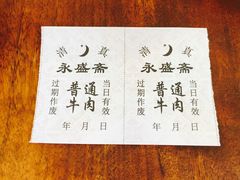 清 真
永盛斋
普通
牛肉
当日有效
过期作废
年 月 日
清 真
永盛斋
普通
牛肉
当日有效
过期作废
年 月 日